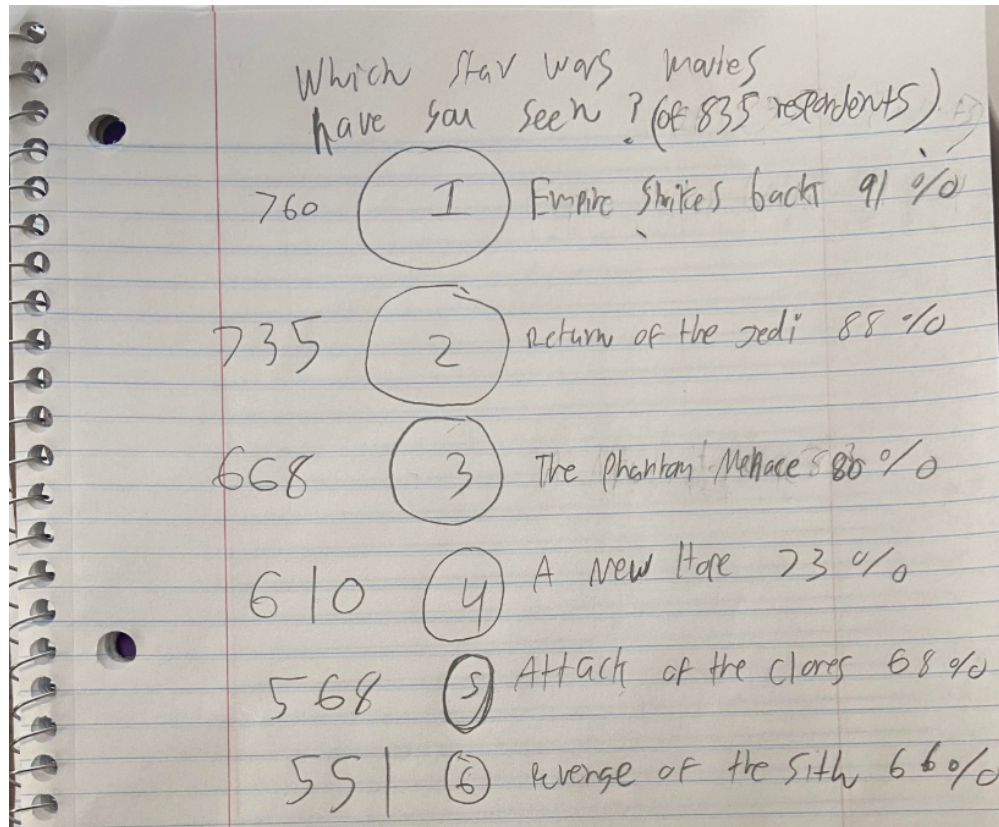 Which Star wars movies
have you seen? (of 835 respondents)
760 1 Empire Strikes back 91%
735 2 Return of the Jedi 88%
668 3 The Phantom Menace 80%
610 4 A New Hope 73%
568 5 Attack of the clones 68%
551 6 revenge of the Sith 66%